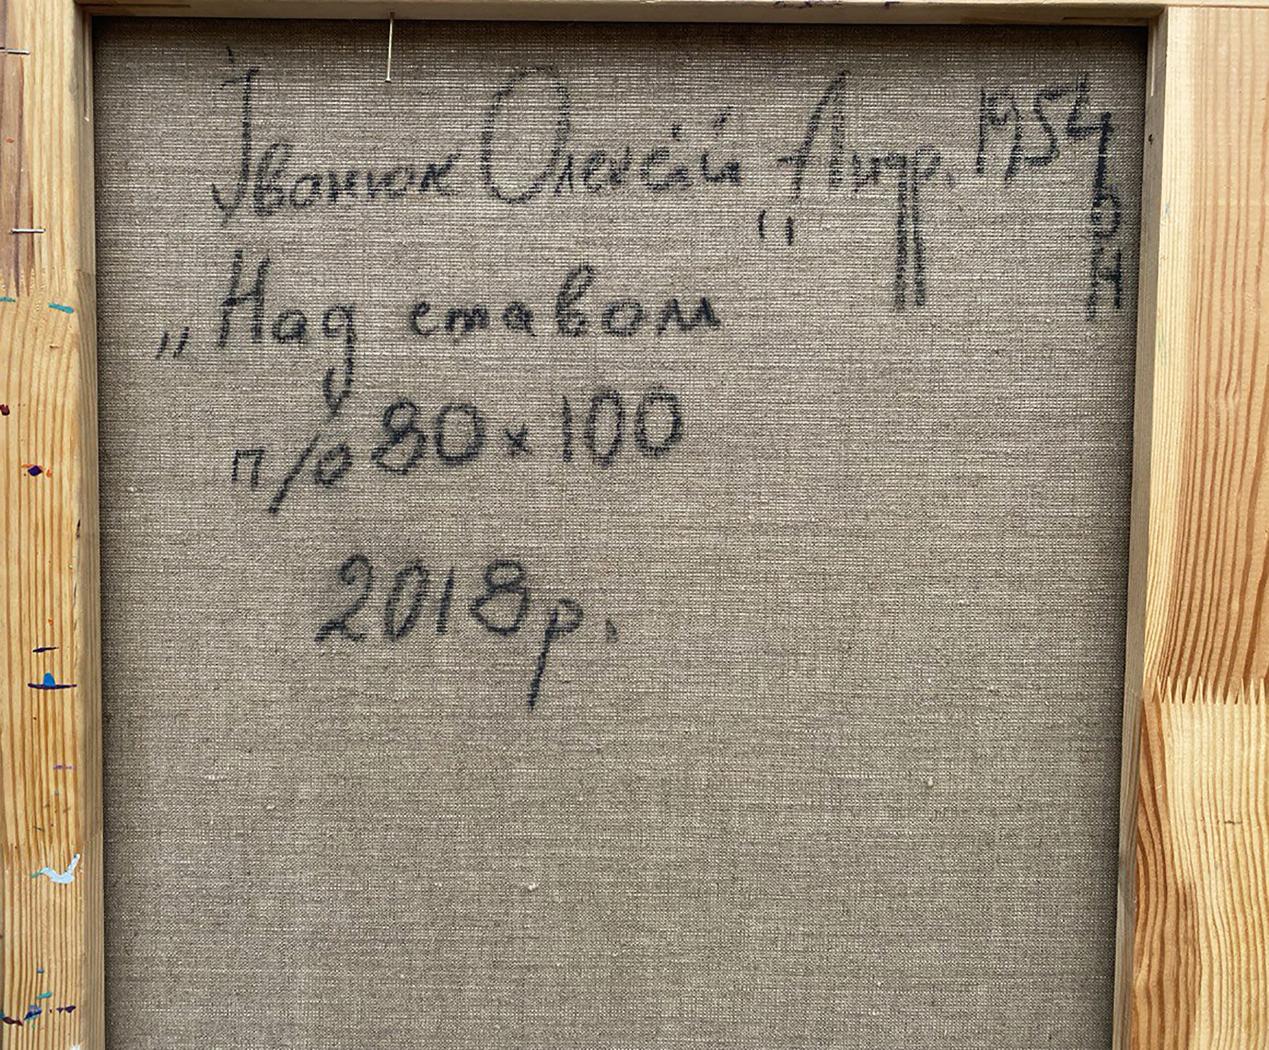 Іванюк Олексій Андр. 1954
р
н
„Над ставом“
п/о 80 х 100
2018р.